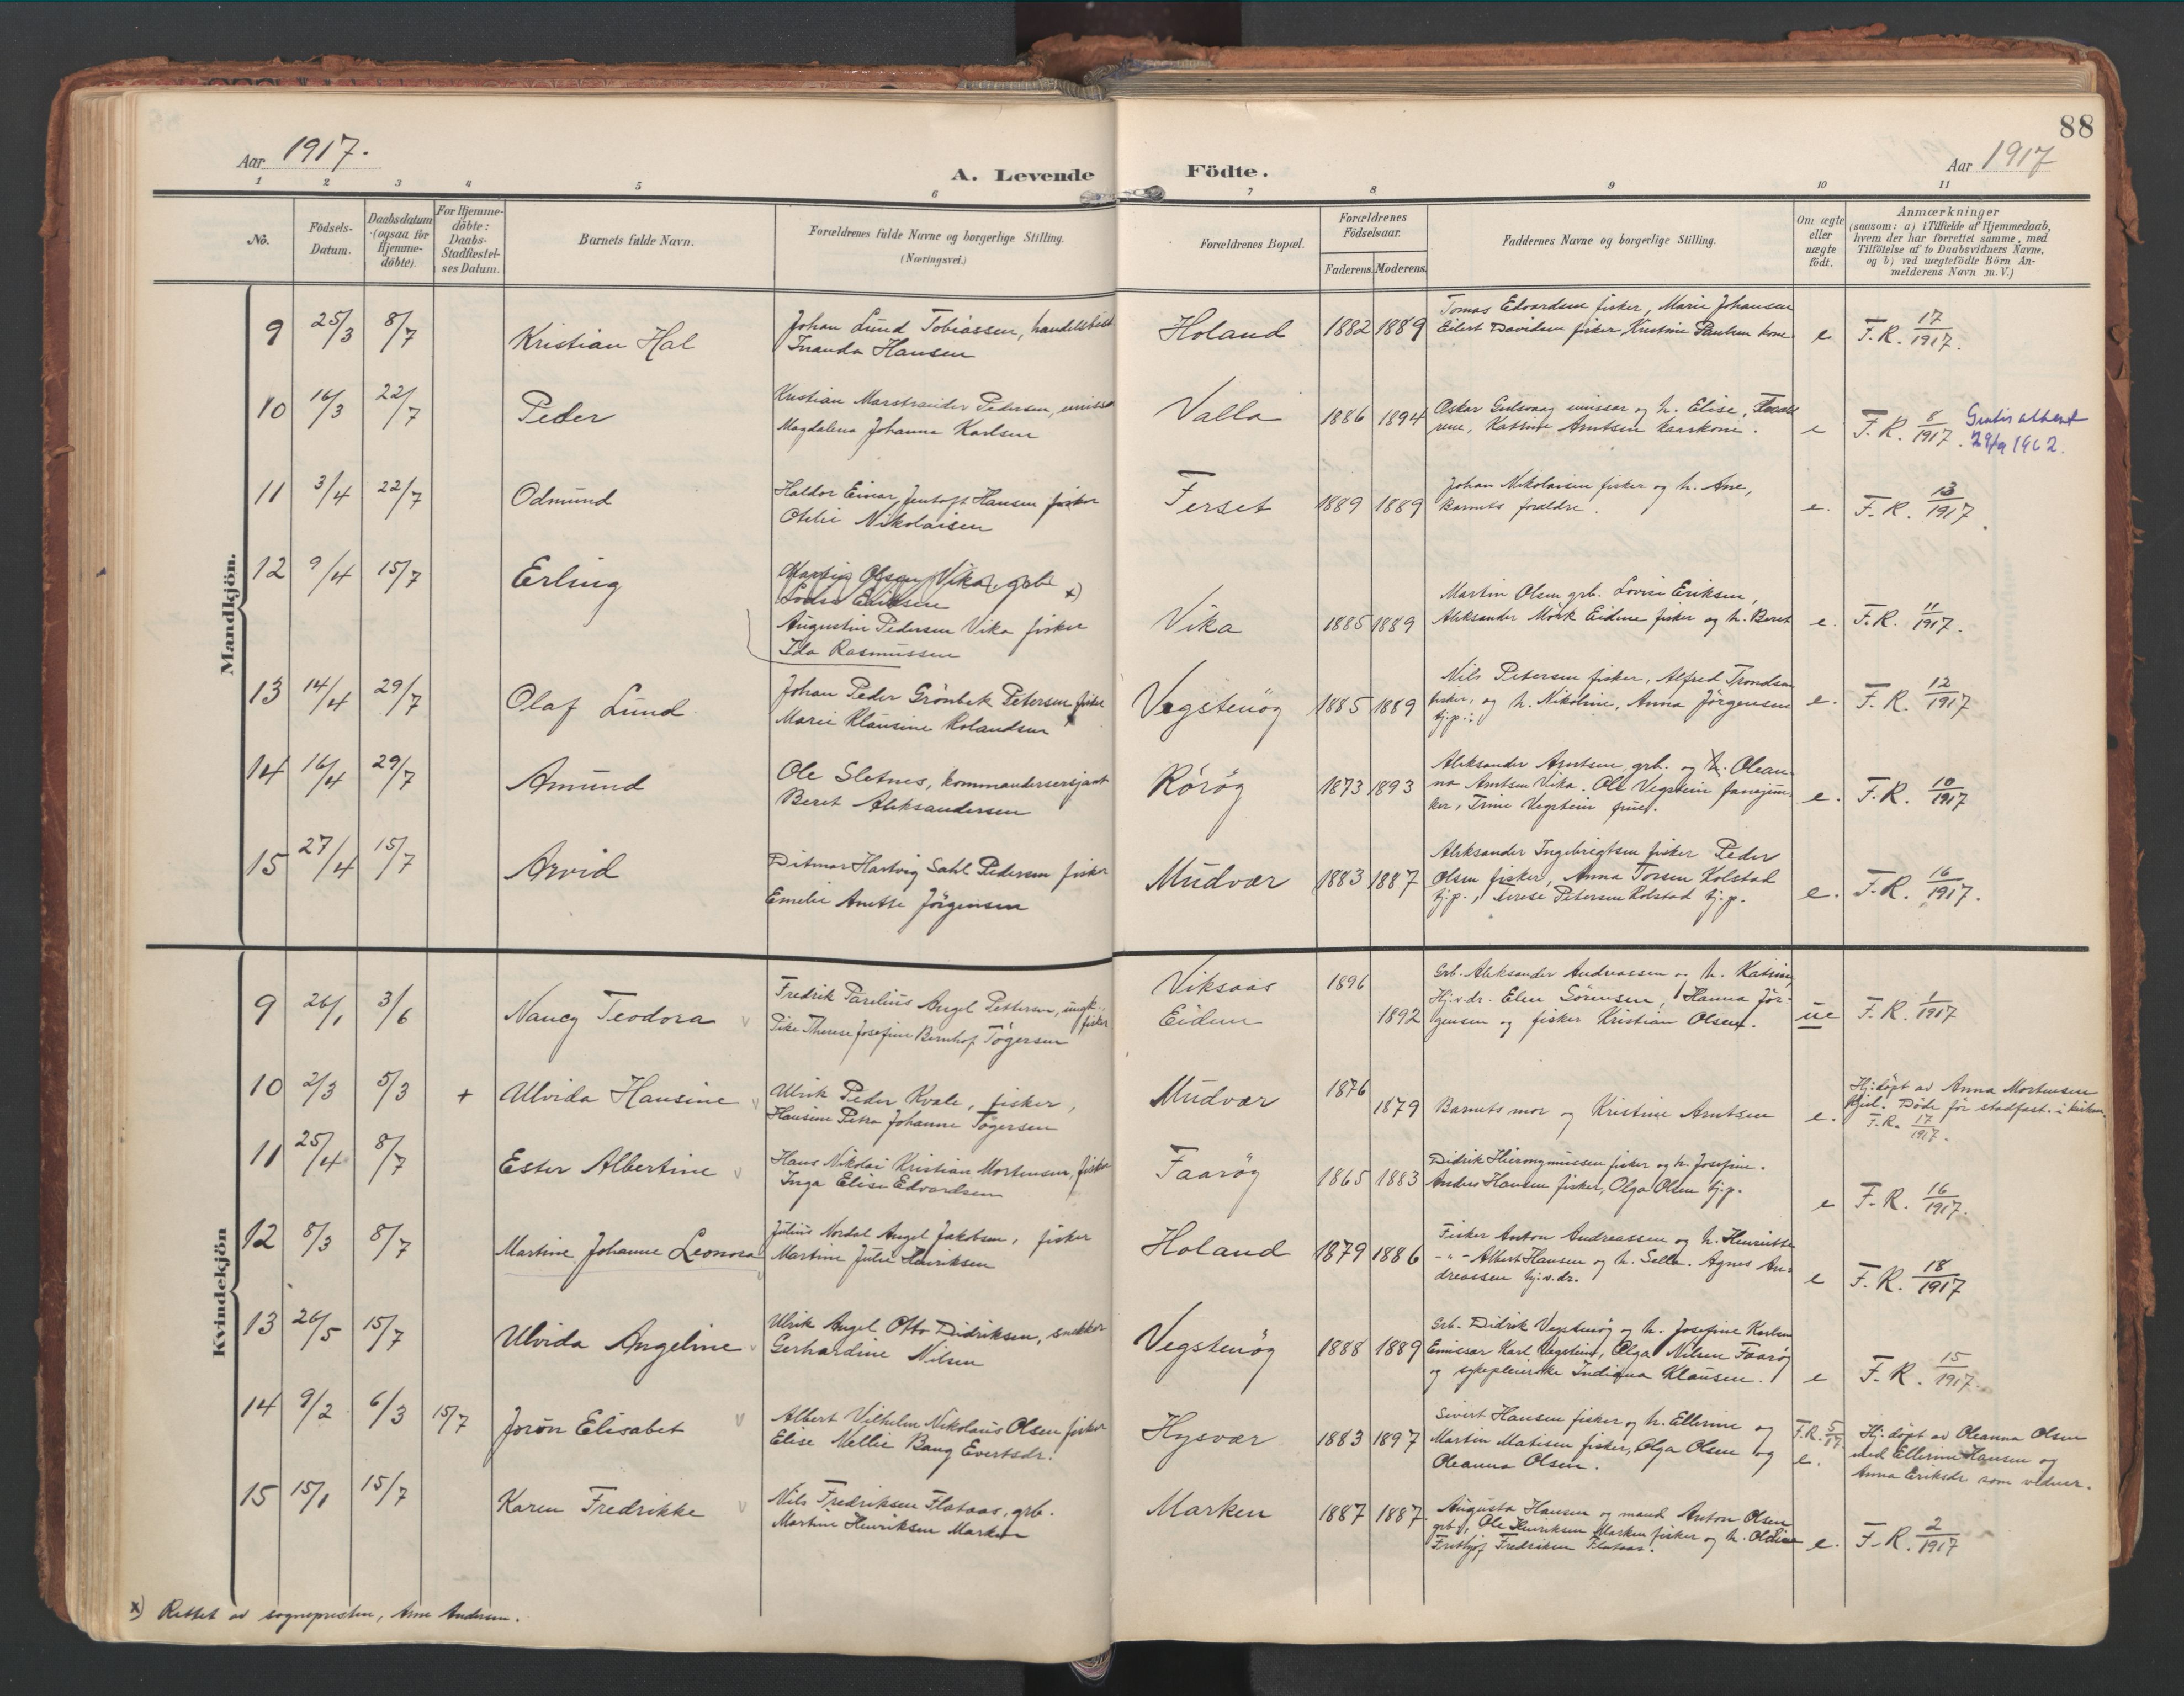 88
Aar 1917.
Aar 1917
A. Levende Födte.
1 2 3 4 5 6 7 8 9 10 11
No.
Födsels-
Datum.
Daabsdatum
(ogsaa for
Hjemme-
döbte).
For Hjemme-
döbte:
Daabs-
Stadfæstel-
ses Datum.
Barnets fulde Navn.
Forældrenes fulde Navne og borgerlige Stilling.
(Næringsvei.)
Forældrenes Bopæl.
Forældrenes
Födselsaar.
Faderens. Moderens.
Faddernes Navne og borgerlige Stilling.
Om ægte
eller
uægte
födt.
Anmærkninger
(saasom: a) i Tilfælde af Hjemmedaab,
hvem der har forrettet samme, med
Tilföielse af to Daabsvidners Navne,
og b) ved uægtefödte Börn An-
melderens Navn m. V.)
Mandkjön.
9 25/3 8/7 Kristian Hal
Johan Lund Tobiassen, handelsbest
Inanda Hansen
Holand 1882 1889
Tomas Edvardsen fisker, Marie Johansen
Eilert Davidsen fisker, Kristine Paulsen kone
e F.R. 17/1917.
10 16/3 22/7 Peder
Kristian Marstrander Pedersen, emissær
Magdalena Johanna Karlsen
Valla 1886 1894
Oskar Gulsvaag emissær og h. Elise,
Katrine Arntsen kaarkone.
e F.R. 8/1917.
29/9 1962.
11 3/4 22/7 Odmund
Haldor Einar Jentoft Hansen fisker
Otelie Nikolaisen
Ferset 1889 1889
Johan Nikolaisen fisker og h. Ane,
Barnets forældre.
e. F.R. 13/1917.
12 9/4 15/7 Erling
Martin Olsen Vika, grb. x)
Lovise Eriksen
Augustin Pedersen Vika fisker
Ida Rasmussen
Vika 1885 1889
Martin Olsen grb. Lovise Eriksen,
Aleksander Mörk Eidene fisker og h. Beret
e. F.R. 11/1917.
13 14/4 29/7 Olaf Lund
Johan Peder Grönbek Petersen fisker
Marie Klausine Rolandsen
Vegstenög 1885 1889
Nils Petersen fisker, Alfred Trondsen
fisker, og h. Nikoline, Anna Jörgensen
tj.p.
e. F.R. 12/1917
14 16/4 29/7 Amund
Ole Sletnes, kommandersersjant
Beret Aleksandersen
Röröy 1873 1893
Aleksander Arntsen, grb. og h. Olean-
na Arntsen Vika. Ole Vegstein fanejun-
ker, Trine Vegstein frue.
e. F.R. 10/1917
15 27/4 15/7 Arvid
Ditmar Hartvig Sahl Pedersen fisker
Emelie Anette Jörgensen
Mudvær 1883 1887
Aleksander Ingebrigtsen fisker Peder
Olsen fisker, Anna Torsen Kolstad
tj.p., Terese Petersen Kolstad tj.p.
e. F.R. 16/1917.
Kvindekjön
9 26/1 3/6 Nancy Teodora
Fredrik Parelius Angel Pettersen, ungk.
fisker
Pike Therese Josefine Bernhof Tögersen
Viksaas 1896
Eidem 1892
Grb. Aleksander Andreassen og h. Katrine,
Hj.v.dr. Elen Sörensen, Hanna Jör-
gensen og fisker Kristian Olsen.
ue F.R. 1/1917
10 2/3 5/3 + Ulvida Hansine
Ulrik Peder Kvale, fisker,
Hansine Petra Johanne Tögersen
Mudvær 1876
1879
Barnets mor og Kristine Arntsen
e.
Hj:döpt av Anna Mortensen
Gjel. Döde för stadfæst. i kirken.
F.R. 17/1917.
11 25/4 8/7 Ester Albertine
Hans Nikolai Kristian Mortensen, fisker
Inga Elise Edvardsen
Faaröy 1865 1883
Didrik Hieronymussen fisker og h. Josefine.
Anders Hansen fisker, Olga Olsen tj.p.
e F.R. 16/1917.
12 8/3 8/7 Martine Johanne Leonora
Julius Nordal Angel Jakobsen, fisker
Martine Julie Henriksen
Holand 1879 1886
Fisker Anton Andreassen og h. Henriette
- " - Albert Hansen og h. Sella. Agnes An-
dreassen hj.v.dr.
e F.R. 18/1917
13 26/5 15/7 Ulvida Angeline
Ulrik Angel Otto Didriksen, snekker
Gerhardine Nilsen
Vegstenög 1888 1889
Grb. Didrik Vegstenög og h. Josefine Karlsen
Emissær Karl Vegstein, Olga Nilsen Faaröy
og sykepleierske Indiana Klausen.
e F.R. 15/1917.
14 9/2 6/3 15/7 Jorön Elisabet
Albert Vilhelm Nikolaus Olsen fisker
Elise Mellie Bang Evertsdr.
Hysvær 1883 1897
Sivert Hansen fisker og h. Ellerine og
Martin Matisen fisker, Olga Olsen og
Oleanna Olsen.
F.R. 5/17.
e.
Hj: döpt av Oleanna Olsen
med Ellerine Hansen og
Anna Eriksdr. som vidner.
15 15/1 15/7 Karen Fredrikke
Nils Fredriksen Flataas, grb.
Martine Henriksen Marken
Marken 1887 1887.
Augusta Hansen og mand Anton Olsen
grb., Ole Henriksen Marken fisker og h. Oldine
Fritjof Fredriksen Flataas.
e. F.R. 2/1917
x) Rettet av sognepresten, Arne Andersen.